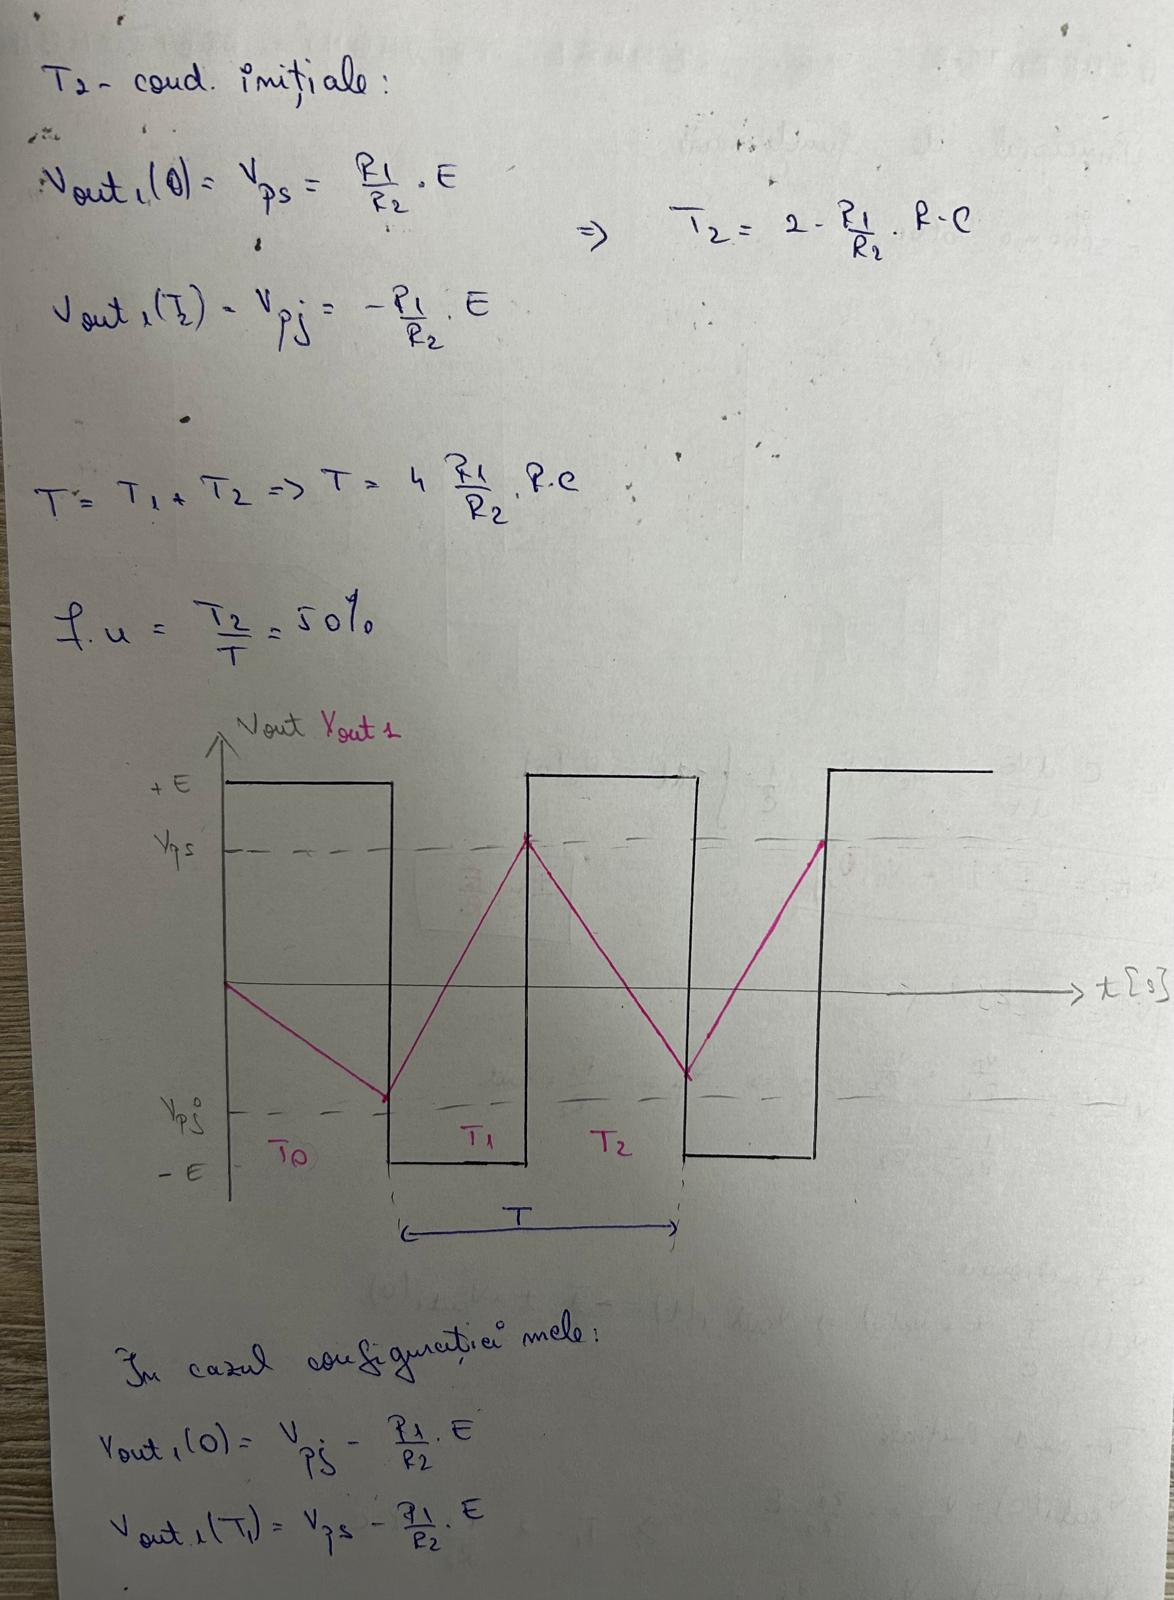 T2 - cond. inițiale:
Vout1(0) = Vps = R1/R2 . E
=> T2 = 2 . R1/R2 . R.C
Vout1(T2) = Vpj = - R1/R2 . E
T = T1 + T2 => T = 4 R1/R2 . R.C
f.u = T2/T = 50%
Vout Vout1
+E
Vps
t[s]
Vpj
T0 T1 T2
-E
T
În cazul configurației mele:
Vout1(0) = Vpj - R1/R2 . E
Vout1(T1) = Vps - R1/R2 . E